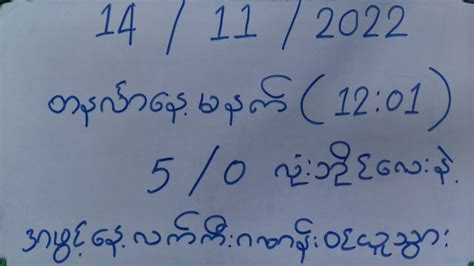 14 / 11 / 2022
တနင်္လာနေ့ မနက် (12:01)
5/0 လုံးဘိုင်လေးနဲ့
အဖွင့်နေ့ လက်ကီးဂဏန်း ဝင်ယူသွား